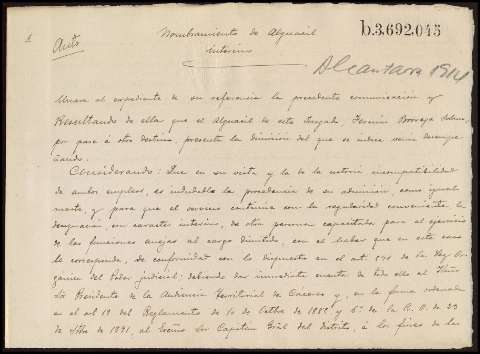 1
Auto
Nombramiento de Alguacil
interino
b.3.692.045
Alcantara 1914
Unase al expediente de su referencia la precedente comunicación y
Resultando de ella que el Alguacil de este Juzgado, Fermín Borrega
por pase á otro destino, presenta la dimisión del que se indica venia desempe-
ñando.
Considerando: Que en su vista y la de la notoria incompatibilidad
de ambos empleos, es indudable la procedencia de su admisión, como igual-
mente, y para que el servicio continúe con la regularidad conveniente, la
designación, en caracter interino, de otra persona capacitada para el ejercicio
de las funciones anejas al cargo dimitido, con el haber que en este caso
le corresponda, de conformidad con lo dispuesto en el art. de la Ley Or-
gánica del Poder judicial: debiendo dar inmediata cuenta de todo ello al Iltmo
Sr Presidente de la Audiencia Territorial de Cáceres y, en la forma ordenada
en el art 19 del Reglamento de 10 de Octbre de 1885 y 6º de la R. O. de 23
de de 1891, al Excmo Sor Capitan Gral del distrito, á los fines de la